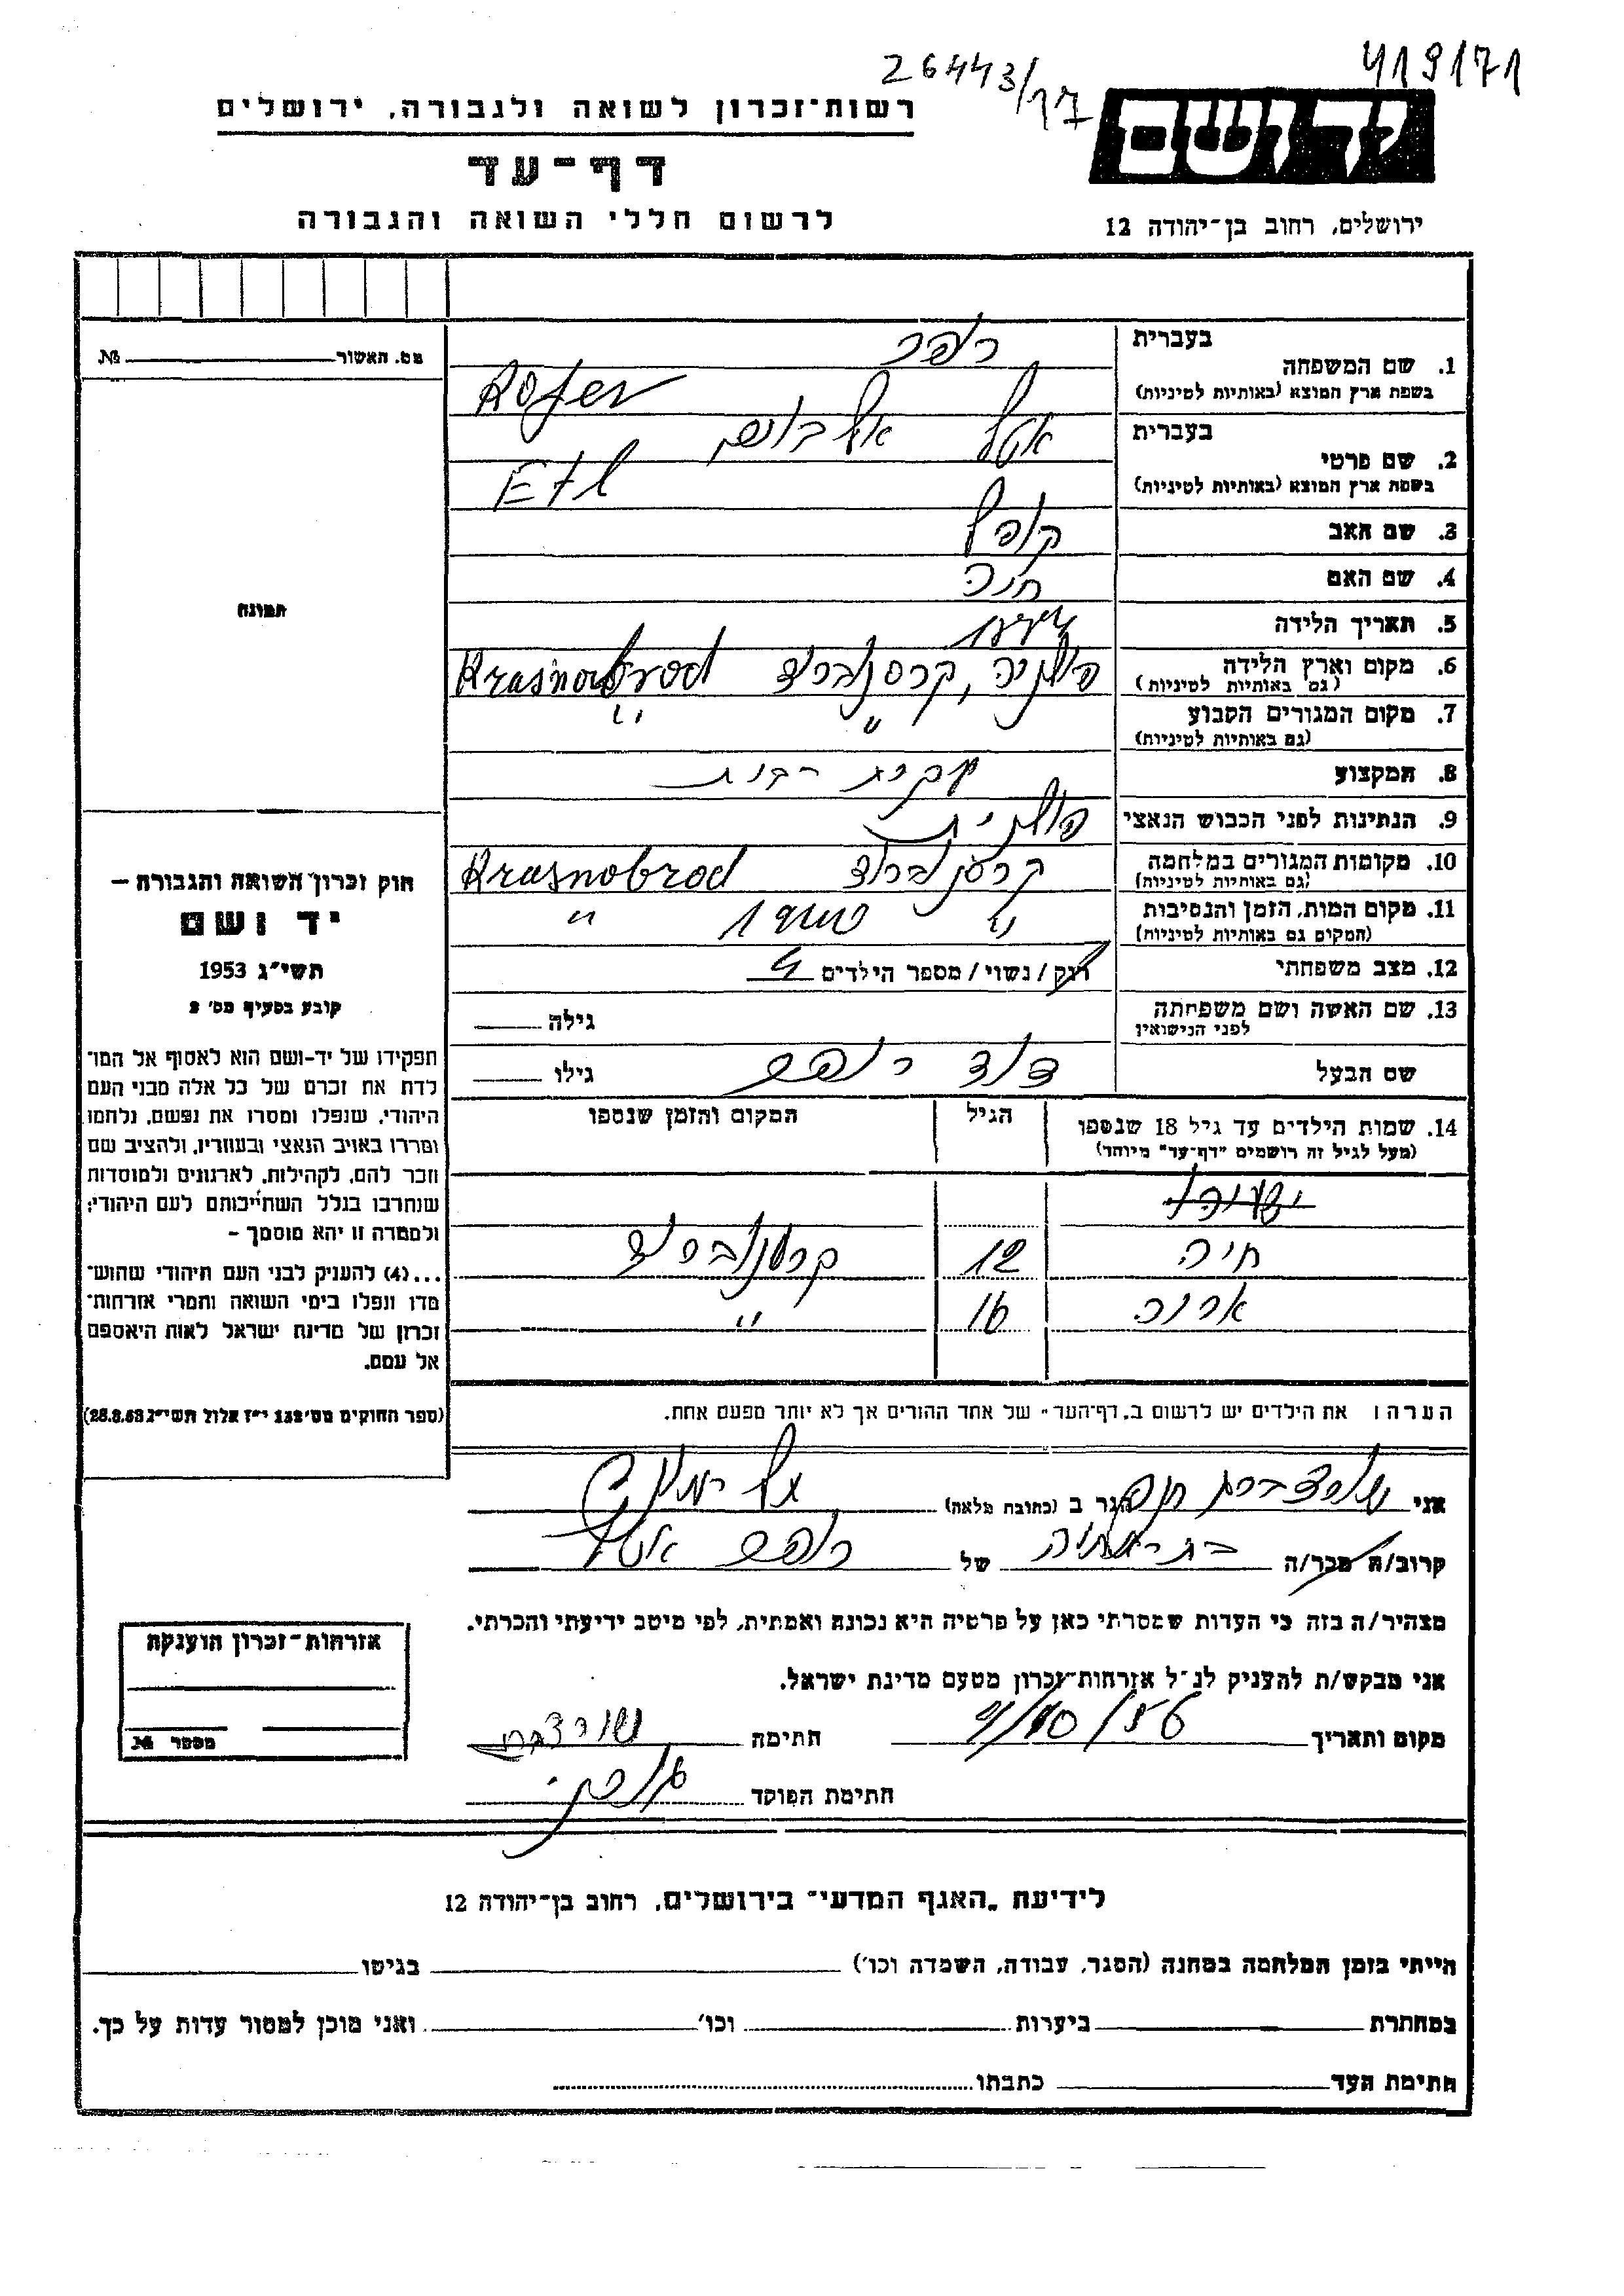 419171
26443/97
רשות־זכרון לשואה ולגבורה, ירושלים
יד ושם
דף־עד
לרשום חללי השואה והגבורה
ירושלים, רחוב בן־יהודה 12
מס. האשור № 
תמונה
1. שם המשפחה בעברית רופר
בשפת ארץ המוצא (באותיות לטיניות) Rofer
2. שם פרטי בעברית אטל
בשפת ארץ המוצא (באותיות לטיניות) Etl
3. שם האב קופל
4. שם האם חיה
5. תאריך הלידה
6. מקום וארץ הלידה פולניה, קרסנוברוד Krasnobrod
(גם באותיות לטיניות)
7. מקום המגורים הקבוע " "
(גם באותיות לטיניות)
8. המקצוע עקרת בית
9. הנתינות לפני הכבוש הנאצי פולנית
10. מקומות המגורים במלחמה קרסנוברוד Krasnobrod
(גם באותיות לטיניות)
11. מקום המות, הזמן והנסיבות " "
(המקום גם באותיות לטיניות)
12. מצב משפחתי רוק / נשוי / מספר הילדים 4
13. שם האשה ושם משפחתה גילה
לפני הנישואין
שם הבעל דוד רופר גילו
14. שמות הילדים עד גיל 18 שנספו הגיל המקום והזמן שנספו
(מעל לגיל זה רושמים "דף־עד" מיוחד)
חיה 12 קרסנוברוד
ארנה 16 "
הערה: את הילדים יש לרשום ב„דף־העד" של אחד ההורים אך לא יותר מפעם אחת.
אני שוורצברט חנה הגר ב (כתובת מלאה)
קרוב/ה מכר/ה של רופר אטל
מצהיר/ה בזה כי העדות שמסרתי כאן על פרטיה היא נכונה ואמתית, לפי מיטב ידיעתי והכרתי.
אני מבקש/ת להעניק לנ"ל אזרחות־זכרון מטעם מדינת ישראל.
מקום ותאריך 4/10/56 חתימה שוורצברט
חתימת הפוקד
חוק זכרון השואה והגבורה –
יד ושם
תשי״ג 1953
קובע בסעיף מס׳ 2
תפקידו של יד־ושם הוא לאסוף אל המו־
לדת את זכרם של כל אלה מבני העם
היהודי, שנפלו ומסרו את נפשם, נלחמו
ומרדו באויב הנאצי ובעוזריו, ולהציב שם
וזכר להם, לקהילות, לארגונים ולמוסדות
שנחרבו בגלל השתייכותם לעם היהודי;
ולמטרה זו יהא מוסמך –
...(4) להעניק לבני העם היהודי שהוש־
מדו ונפלו בימי השואה והמרי אזרחות־
זכרון של מדינת ישראל לאות היאספם
אל עמם.
(ספר החוקים מס׳ 132 י״ז אלול תשי״ג 28.8.53)
אזרחות־זכרון הוענקה
מספר №
לידיעת „האגף המדעי" בירושלים, רחוב בן־יהודה 12
הייתי בזמן המלחמה במחנה (הסגר, עבודה, השמדה וכו׳) בגיטו
במחתרת ביערות וכו׳ ואני מוכן למסור עדות על כך.
חתימת העד כתבתו